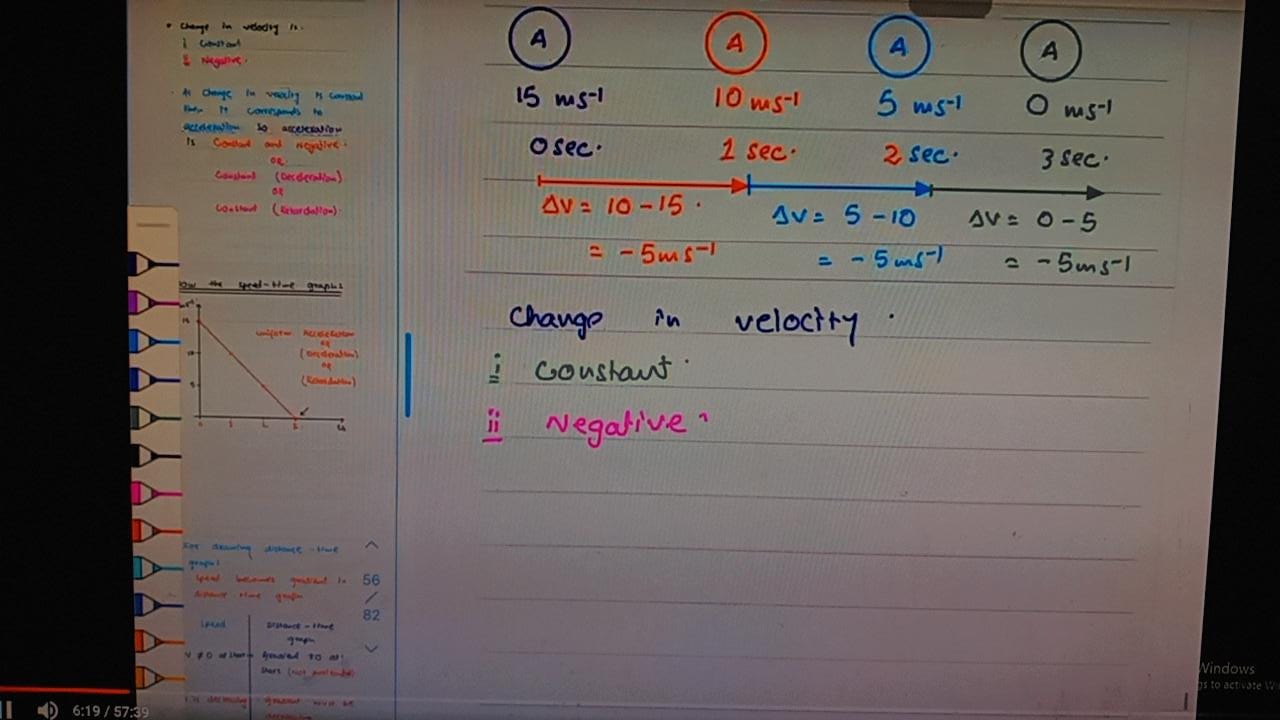 • Change in velocity is.
i Constant
ii Negative.
• As Change in velocity is constant
then it corresponds to
acceleration so acceleration
is Constant and negative.
OR
Constant (Deceleration)
OR
Constant (Retardation)
the speed-time graph:
uniform Acceleration
OR
(Deceleration)
OR
(Retardation)
For drawing distance-time
graph:
Speed becomes gradient in
distance time graph
Speed
Distance-time
graph
A A A A
15 ms⁻¹ 10 ms⁻¹ 5 ms⁻¹ 0 ms⁻¹
0 sec. 1 sec. 2 sec. 3 sec.
ΔV = 10 - 15 . ΔV = 5 - 10 ΔV = 0 - 5
= -5ms⁻¹ = -5ms⁻¹ = -5ms⁻¹
Change in velocity .
i. Constant .
ii Negative
56
/
82
Windows
gs to activate W
6:19 / 57:39